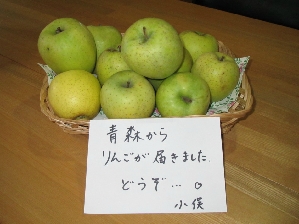 青森から
りんごが届きました
どうぞ…。
小俣